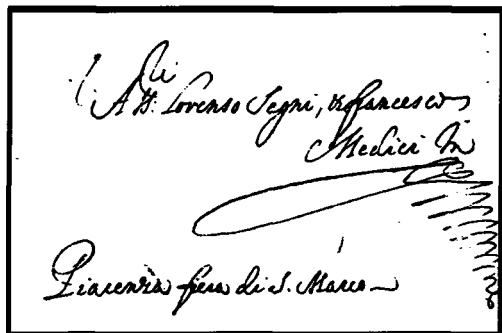 Lorenso Segni, & francesco
Medici In
Piacenza fiera di S. Marco